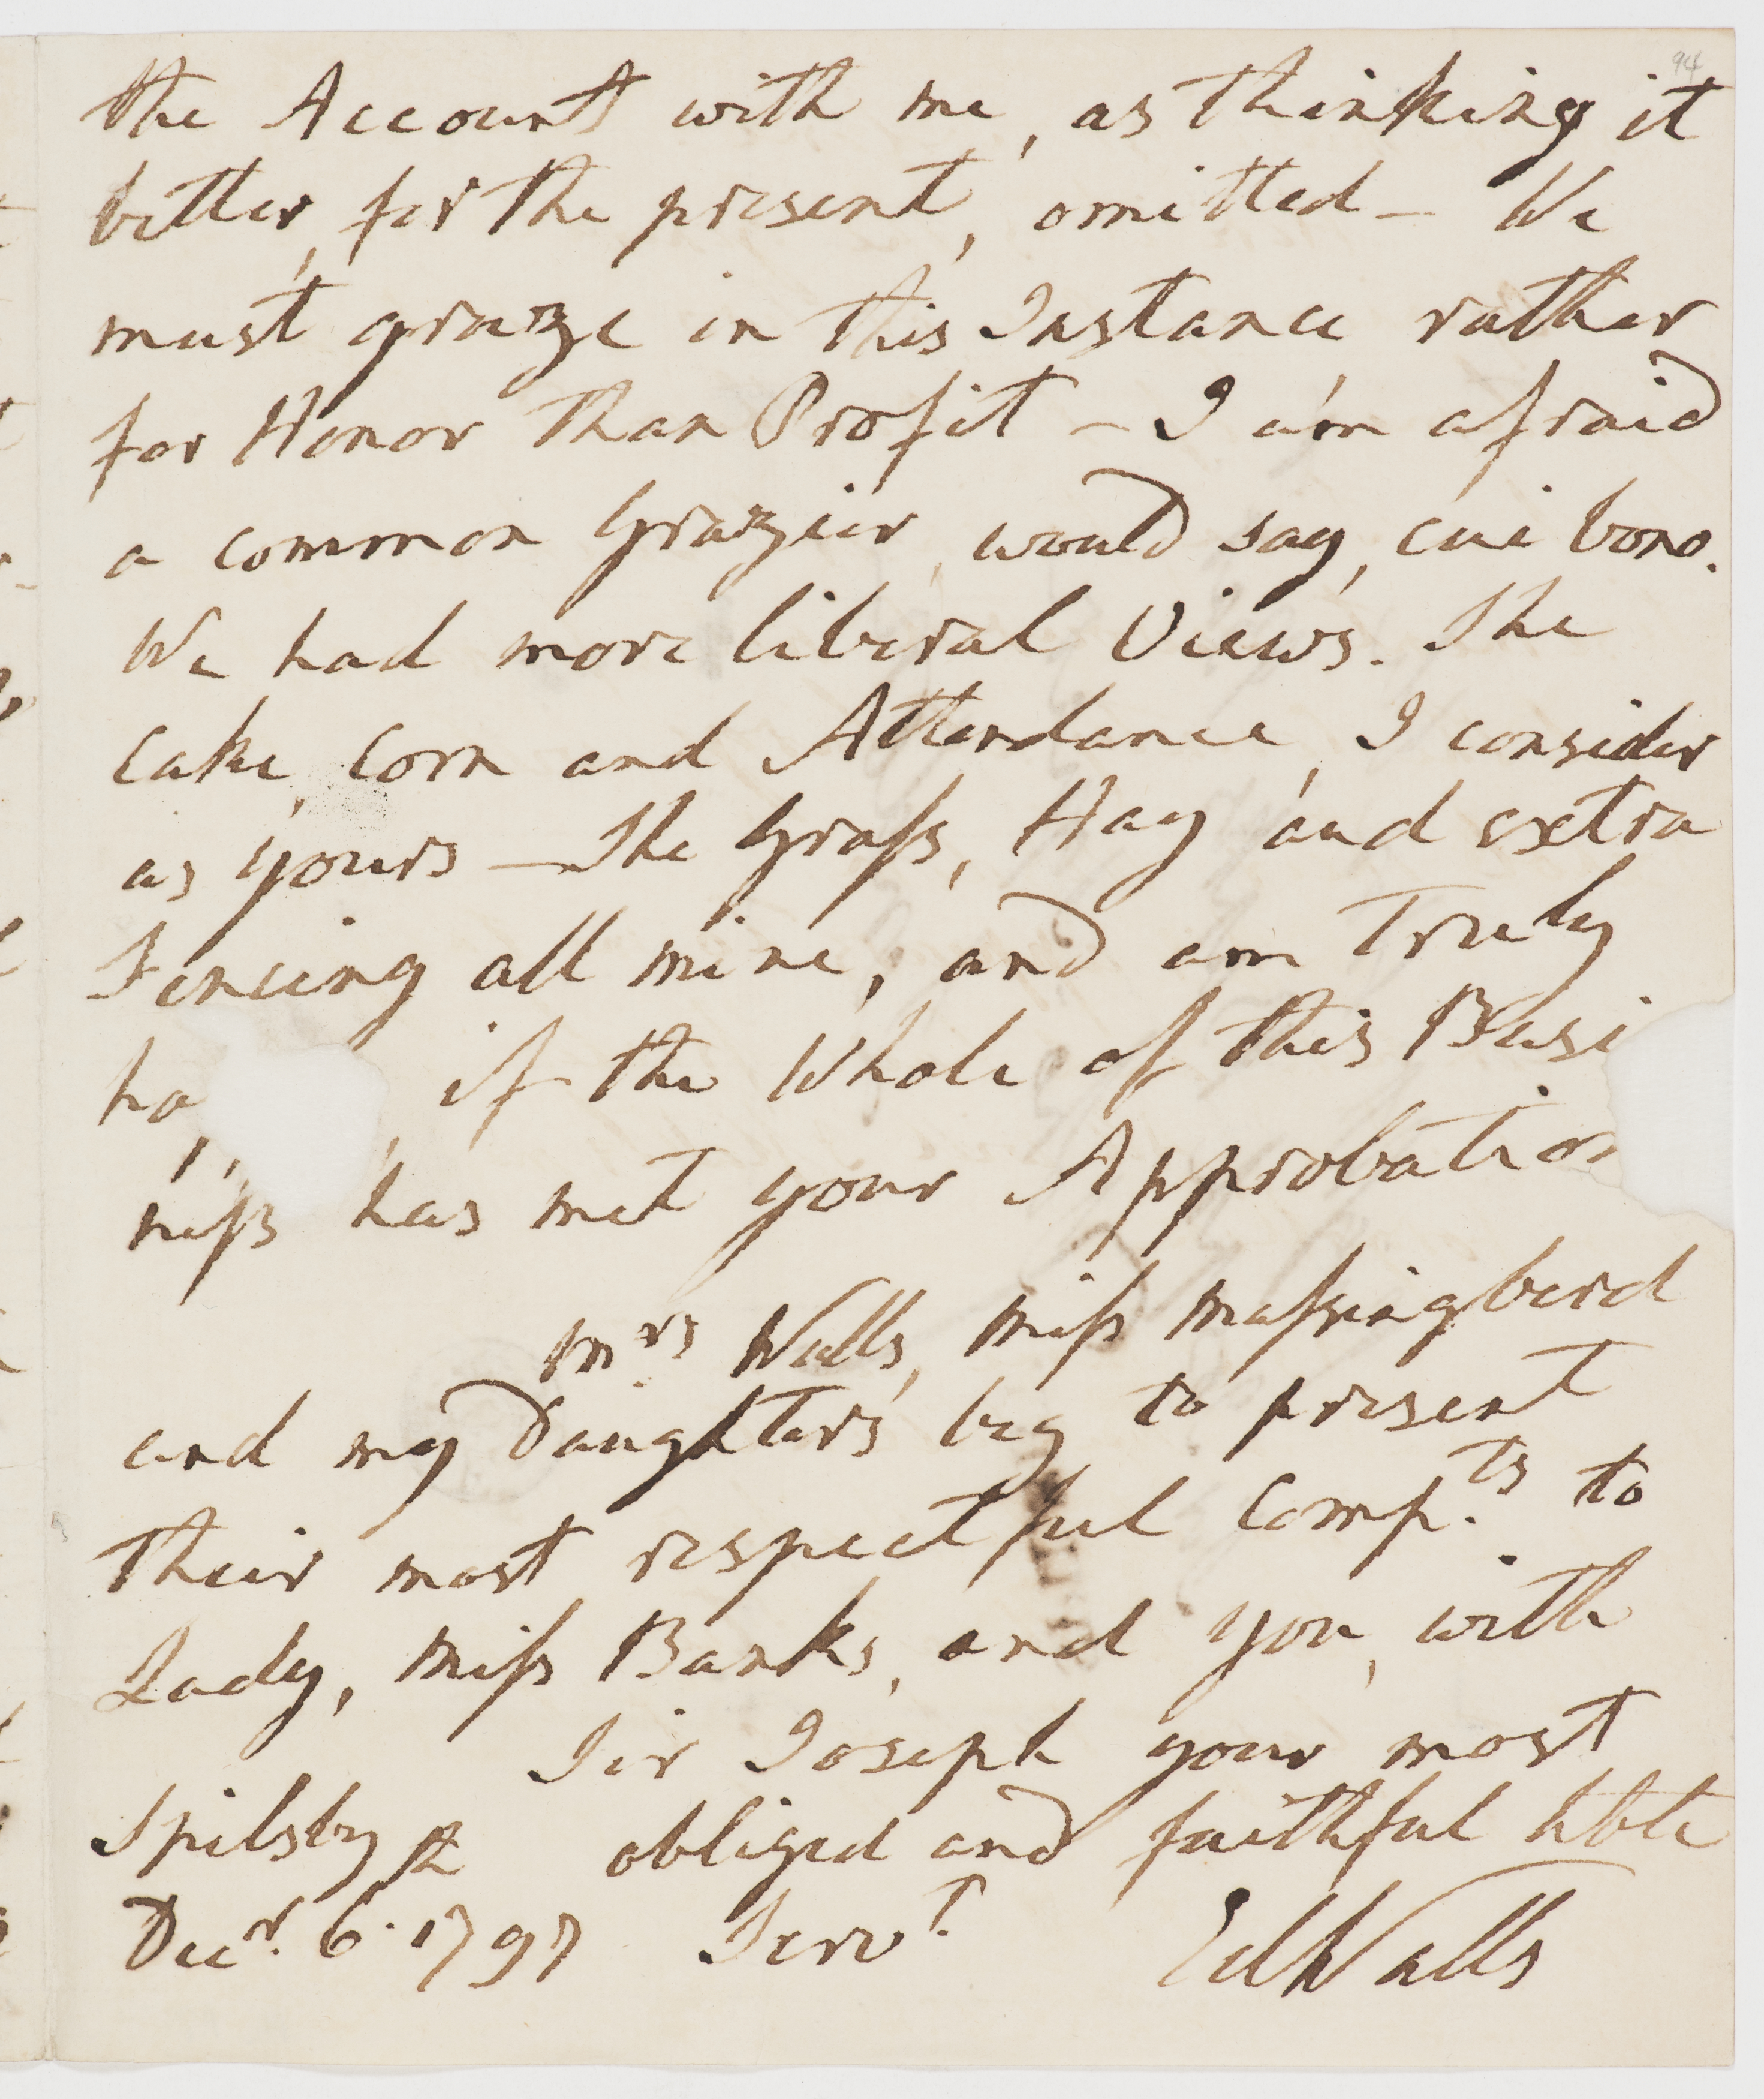 94
the Account with me, as thinking it
better, for the present, omitted — We
must graze in this Instance rather
for Honor than Profit — I am afraid
a common Grazier, would say, cui bono.
We had more liberal Views. The
Cake, Corn and Attendance, I consider
as yours — The Grass, Hay and extra
Fencing all mine, and am Truly
if the Whole of this Busi
ness has met your Approbation
Mrs Walls, Miss Massingberd
and my Daughters beg to present
their most respectful Comp.ts to
Lady, Miss Banks, and you, with
Sir Joseph your most
Spilsby obliged and faithful hble
Decr. 6. 1797 Servt. Ed Walls